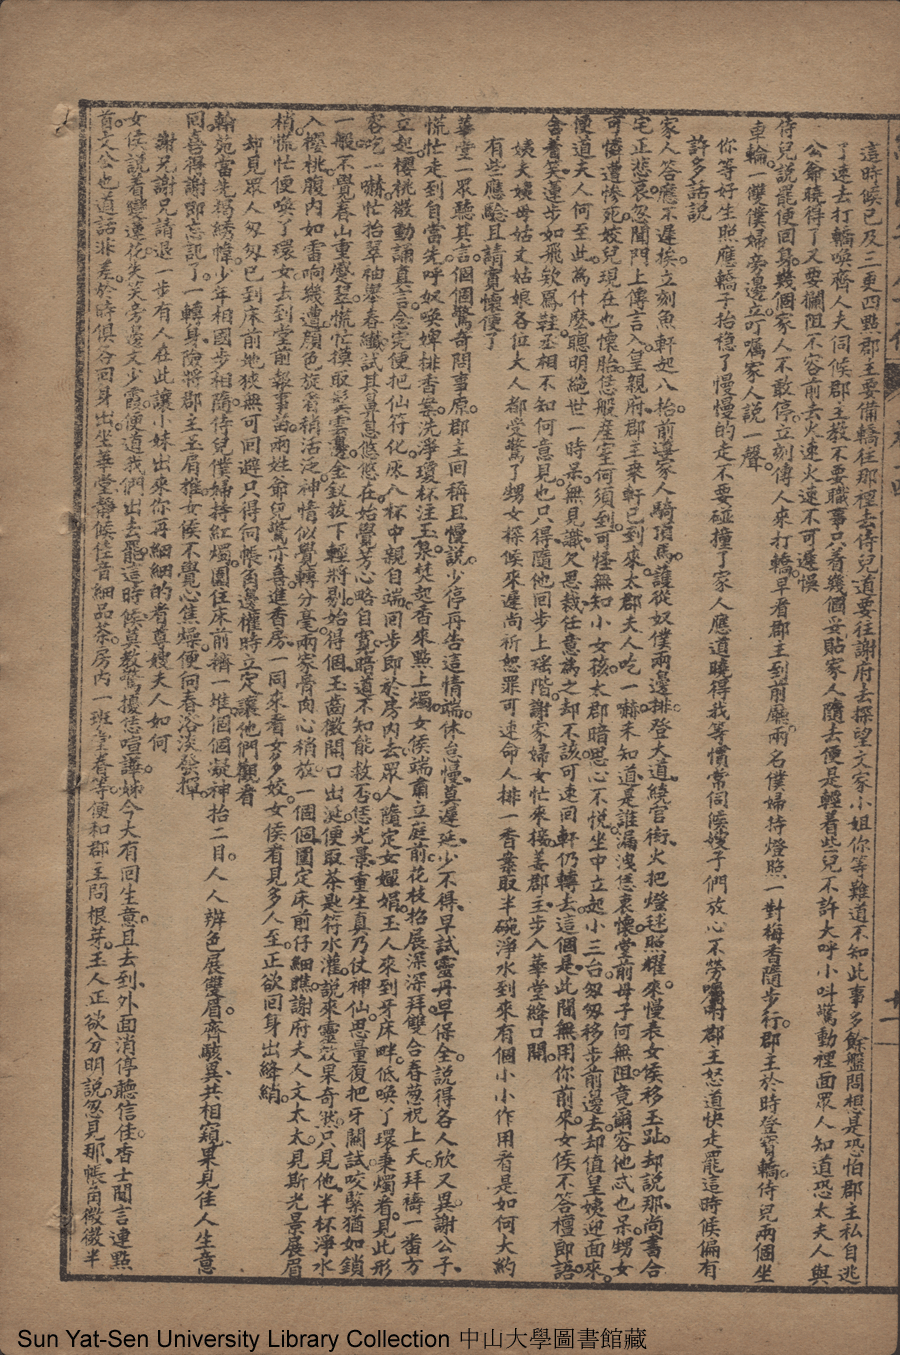 這時候已及三更四點郡主要備轎往那裡去侍兒道要往謝府去探望文家小姐你等難道不知此事多餘盤問想是恐怕郡主私自逃
了速去打轎喚齊人夫伺候郡主教不要職事只着幾個妥貼家人隨去便是輕着些兒不許大呼小叫驚動裡面眾人知道恐太夫人與
公爺曉得了又要攔阻不容前去火速火速不可遲悞
侍兒說罷便回身幾個家人不敢停立刻傳人來打轎早看郡主到前廳兩名僕婦持燈照一對梅香隨步行郡主於時登寶轎侍兒兩個坐
車輪一雙僕婦旁邊立叮囑家人說一聲
你等好生照應轎子抬稳了慢慢的走不要碰撞了家人應道曉得我等慣常伺候嫂子們放心不勞囑咐郡主怒道快走罷這時候偏有
許多話說
家人答應不遲挨立刻魚軒起八抬前邊家人騎頂馬護從奴僕兩邊排登大道繞官街火把燈毬照耀來慢表女侯移玉趾却說那尚書合
宅正悲哀忽聞門上傳言入皇親府郡主來軒已到來太郡夫人吃一嚇未知道是誰漏洩恁衷懷堂前母子何無阻竟爾容他忒也呆甥女
可憐遭慘死姣兒現在也懷胎恁般産室何須到可怪無知小女孩太郡暗思心不悅坐中立起小三台匆匆移步前邊去却值皇姨迎面來
便道夫人何至此為什麽聰明絕世一時呆無見識欠思裁任意為之却不該可速回軒仍轉去這個是此間無用你前來女侯不答檀郎語
含著笑蓮步如飛欽鳳鞋丞相不知何意見也只得隨他回步上瑶階謝家婦女忙來接姜郡主步入華堂絳口開
姨夫姨母姑丈姑娘各位大人都受驚了甥女探候來遲尚祈恕罪可速命人排一香案取半碗淨水到來有個小小作用看是如何大約
有些應驗且請寬懷便了
華堂一眾聽其言個個驚奇問事原郡主回稱且慢說少停再告這情端休怠慢莫遲延少不得早試靈丹早保全說得各人欣又異謝公子
慌忙走到自當先呼奴喚婢排香案洗淨瓊杯注玉泉焚起香來點上燭女侯端肅立庭前花枝招展深深拜雙合春葱祝上天拜禱一番方
立起櫻桃微動誦真言念完便把仙符化灰入杯中親自端回步即於房內去眾人隨定女嬋娟玉人來到牙床畔低喚了環秉燭看見此形
容吃一嚇忙抬翠袖舉春纖試其鼻息悠悠在始覺芳心略自寬暗道不知能救否恁光景重生真乃仗神仙思量復把牙關試咬緊猶如鎖
一般不覺春山重蹙翠慌忙摸取髪雲邊金釵拔下輕將剔始得個玉齒微開口出涎便取茶匙符水灌說來靈效果奇然只見他半杯淨水
入櫻桃腹內如雷响幾遭顏色旋看稍活泛神情似覺轉分毫兩家骨肉心稍放一個個圍定床前仔細瞧謝府夫人文太太見斯光景展眉
梢慌忙便喚了環女去到堂前報事苗兩姓爺兒驚亦喜進香房一同來看女多姣女侯看見多人至正欲回身出絳綃
却見眾人匆匆已到床前地狹無可回避只得向帳角邊權時立定讓他們觀看
翰苑當先揭綉幃少年相國步相隨侍兒僕婦持紅燭圍住床前擠一堆個個凝神抬二目人人辨色展雙眉齊駭異共相窺果見佳人生意
回喜得謝郎忘訊了一轉身險將郡主玉肩推女侯不覺心焦燥便向春浴淡發揮
謝兄謝兄請退一步有人在此讓小妹出來你再細細的看尊嫂夫人如何
女侯說着變蓮花失笑旁邊文少霞便道我們出去罷這時候莫教驚擾恁喧譁妹今大有回生意且去到外面消停聽信佳香士聞言連點
首文公也道話非差於時俱各回身出坐華堂靜候佳音細品茶房內一班堂春等便和郡主問根芽玉人正欲分明說忽見那帳角微微半
Sun Yat-Sen University Library Collection 中山大學圖書館藏